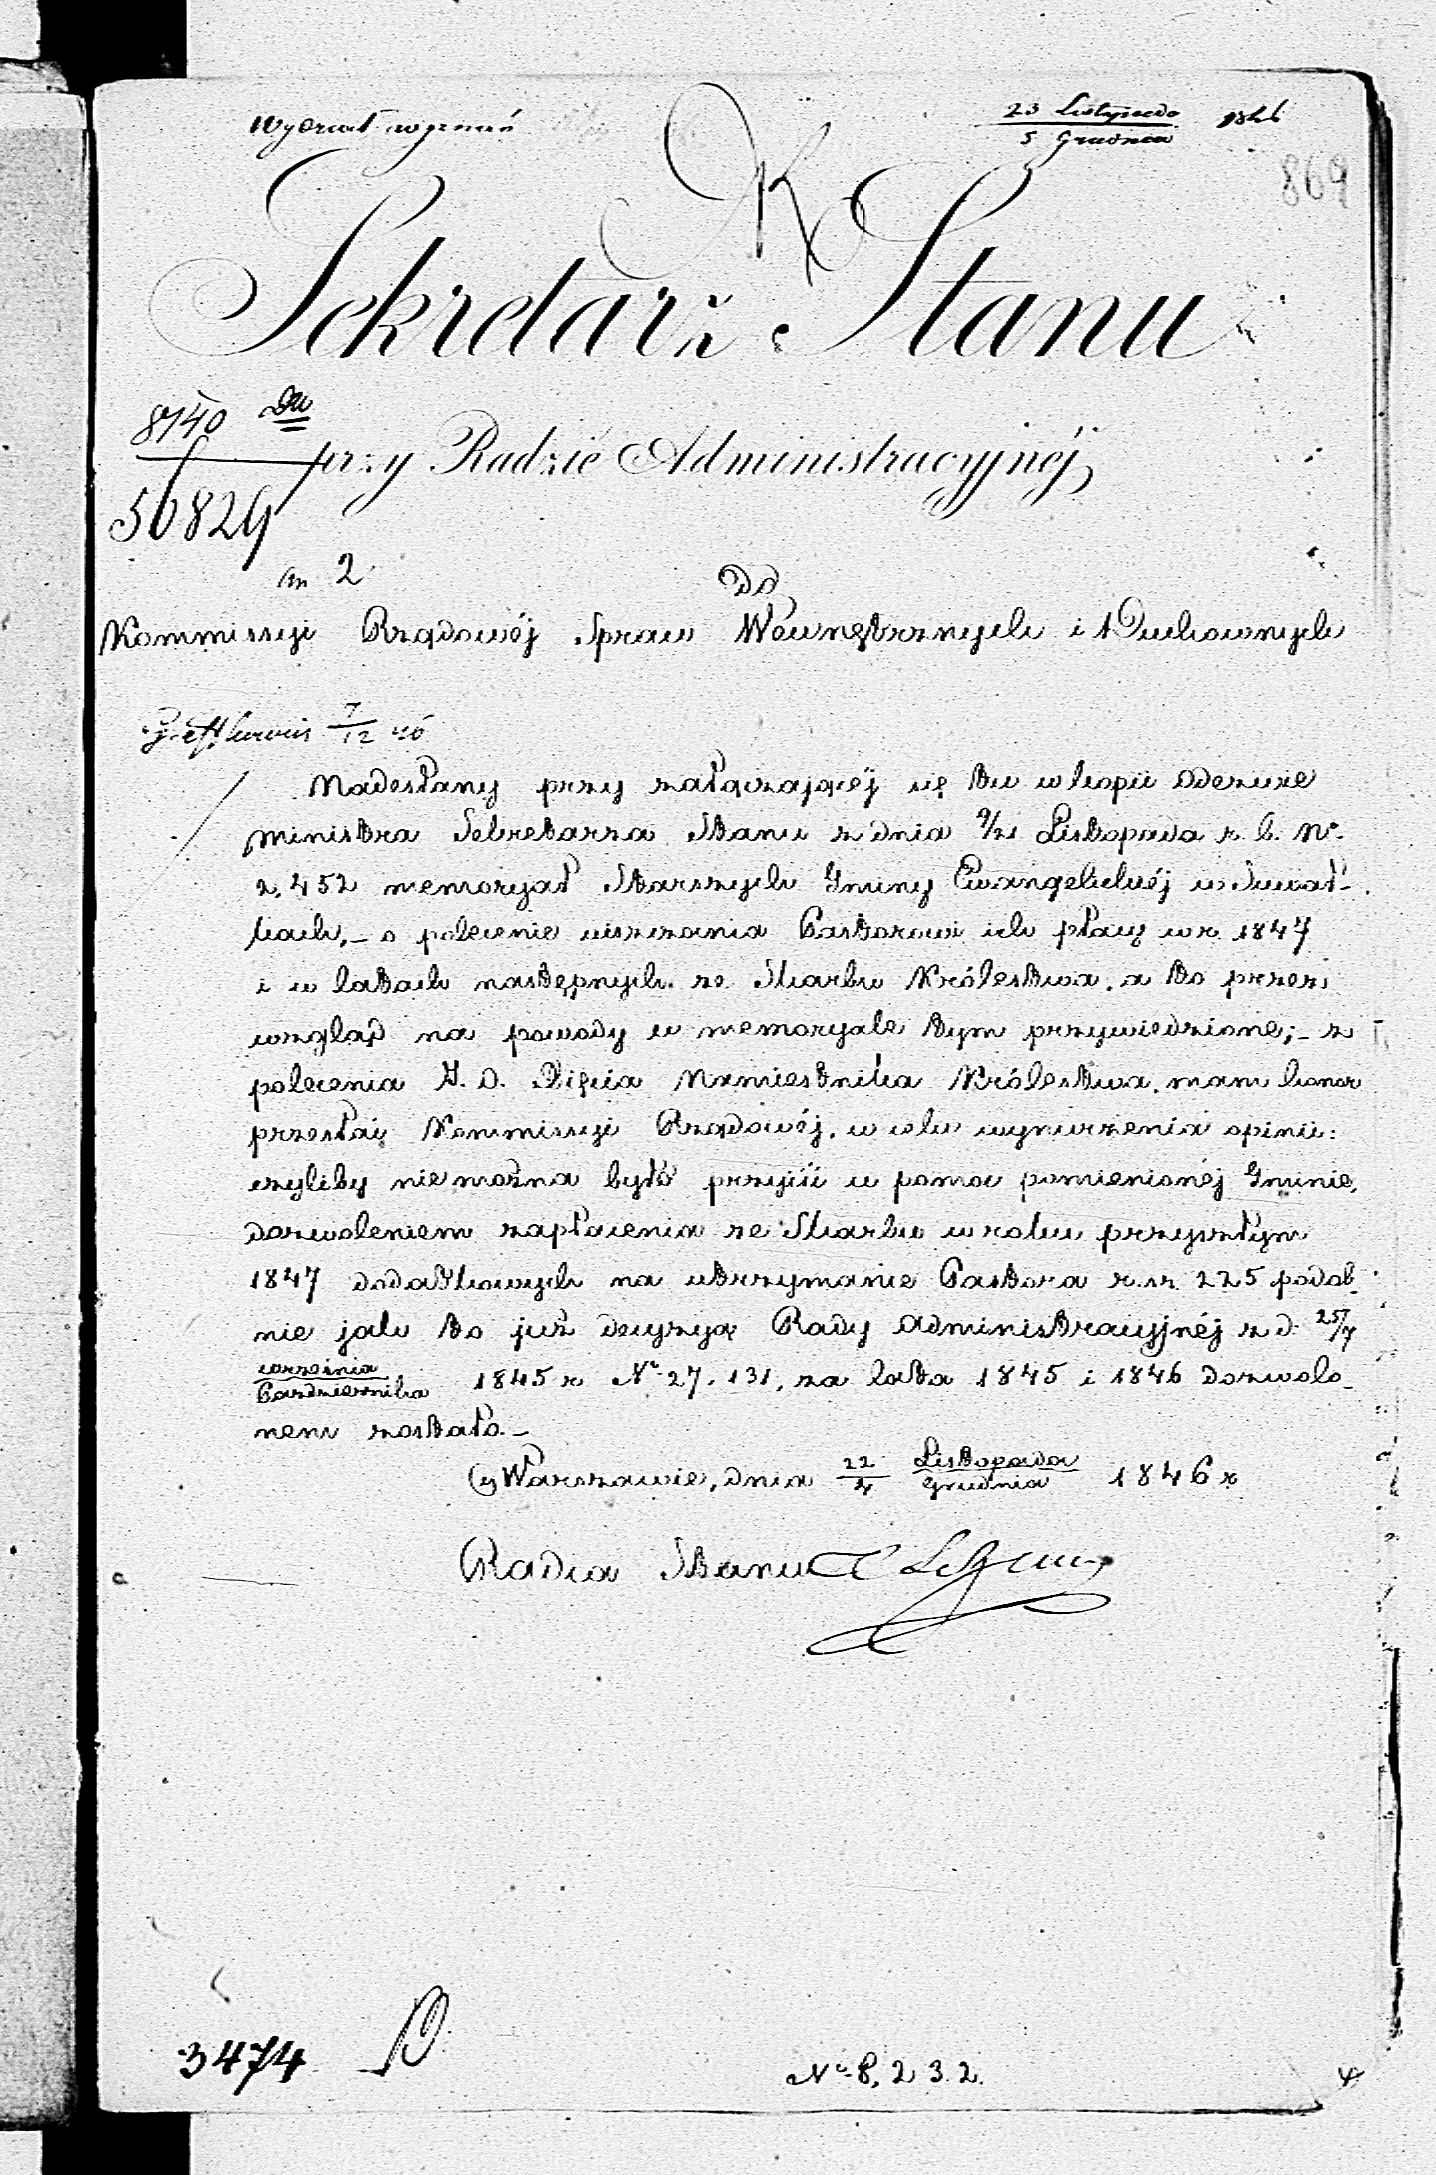 23 Listopada
5 Grudnia 1846
869
Sekretarz Stanu
8140 Du
przy Radzie Administracyjnéj
56829
an 2
Do
Kommissyi Rządowéj Spraw Wewnętrznych i Duchownych
7/12 46
Nadesłany przy załączającéj się tu w kopii Odezwie
Ministra Sekretarza Stanu z dnia 9/21 Listopada r. b. No.
2,452 memoryał Starszych Gminy Ewangelickiéj w Suwał-
kach, – o polecenie uiszczania Pastorowi ich płacy w r. 1847
i w latach następnych ze Skarbu Królestwa, a to przez
wzgląd na powody w memoryale tym przywiedzione; – z
polecenia J. O. Xięcia Namiestnika Królestwa, mam honor
przesłać Kommissyi Rządowéj, w celu wynurzenia opinii:
czyliby nie można było przyjść w pomoc pomienionéj Gminie,
dozwoleniem zapłacenia ze Skarbu w roku przyszłym
1847 dodatkowych na utrzymanie Pastora r. sr. 225 podob-
nie jak to już decyzyą Rady Administracyjnéj z d. 25/7
Września
Października 1845 r. No 27,131, za lata 1845 i 1846 dozwolo-
nem zostało. –
w Warszawie, dnia 22/4 Listopada
Grudnia 1846 r
Radca Stanu
3474
No 8,232.